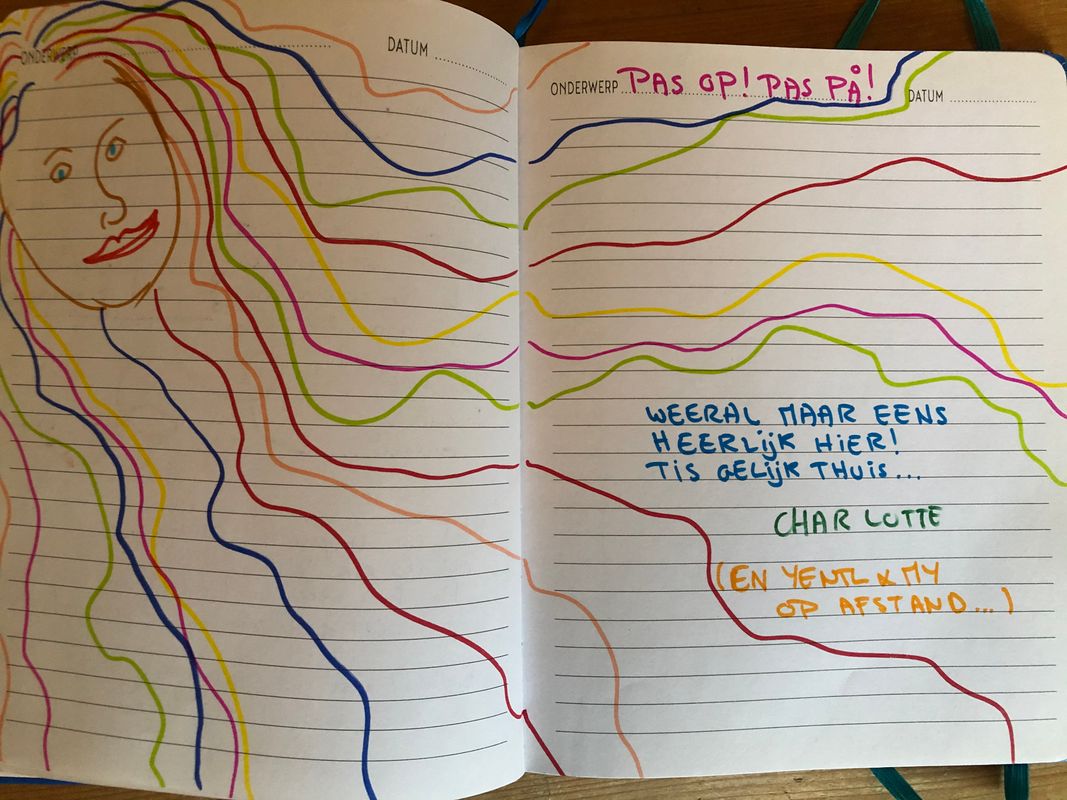 ONDERWERP
DATUM
ONDERWERP PAS OP! PAS PÅ! DATUM
WEERAL MAAR EENS
HEERLIJK HIER!
TIS GELIJK THUIS...
CHARLOTTE
(EN YENTL & MY
OP AFSTAND...)